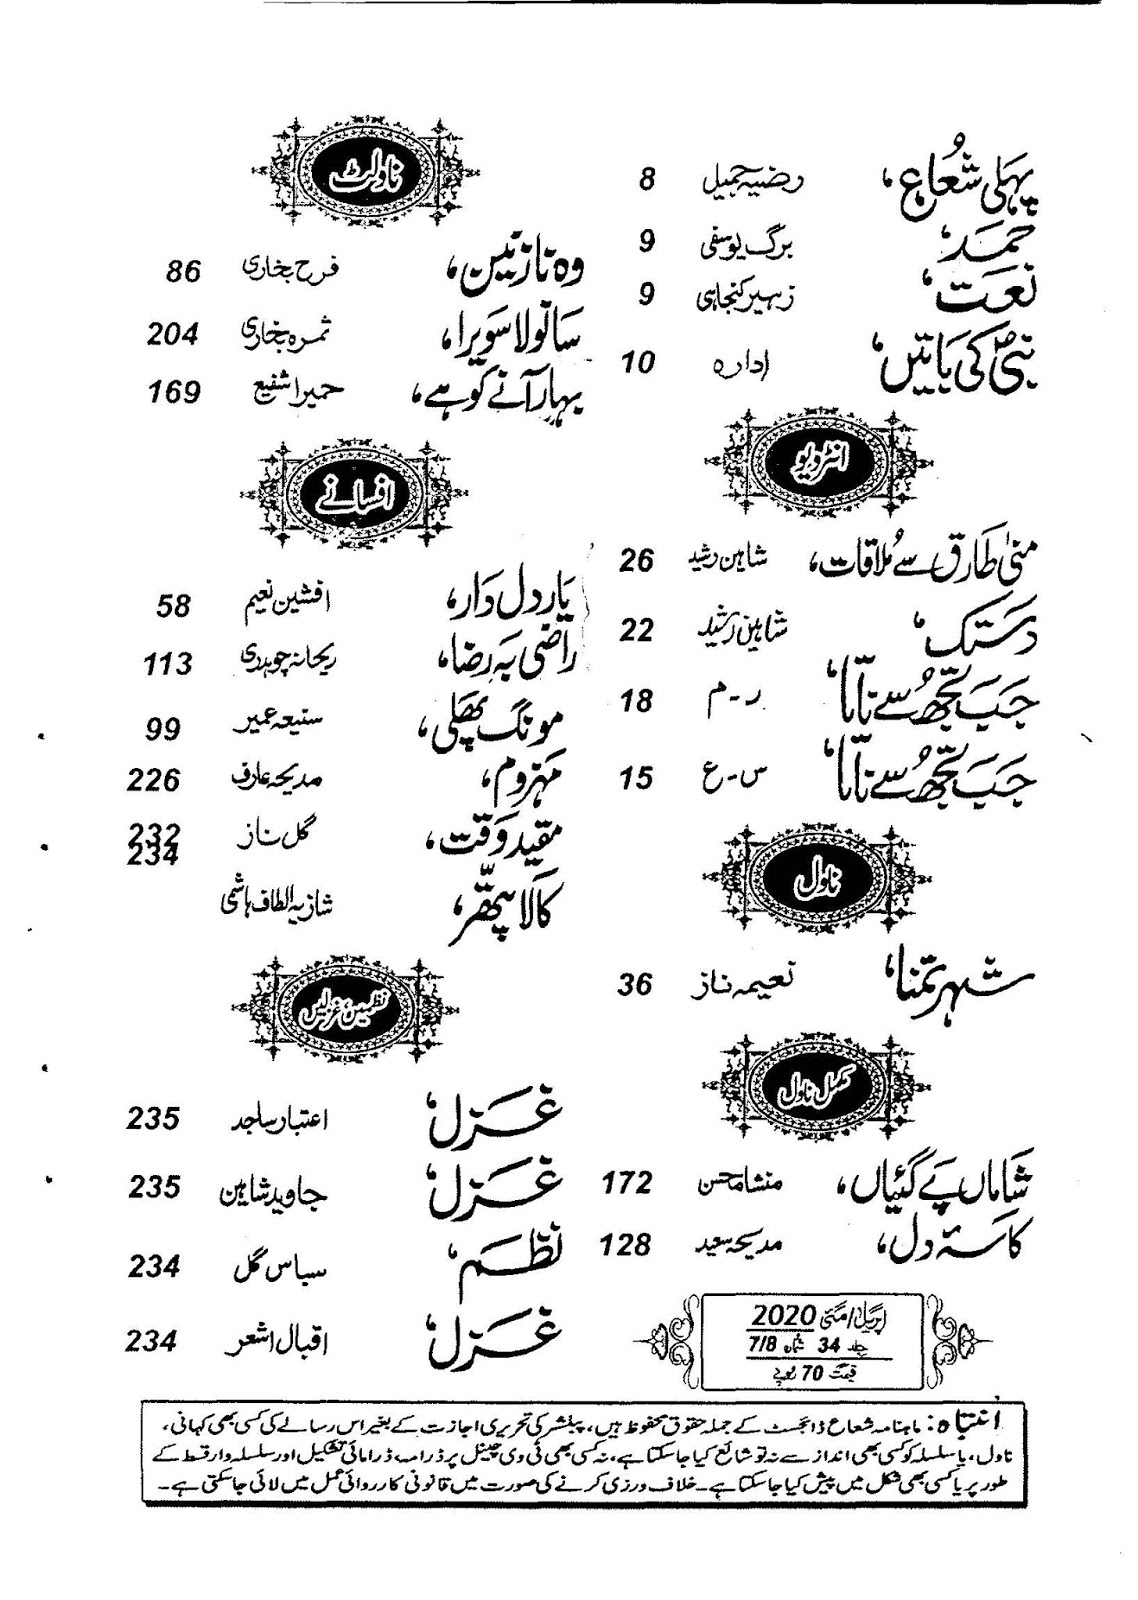 پہلی شعاع، رضیہ جمیل 8
حمد، برگ یوسفی 9
نعت، زہیر کنجاہی 9
نبیؐ کی باتیں، ادارہ 10
انٹرویو
منیٰ طارق سے ملاقات، شاہین رشید 26
دستک، شاہین رشید 22
جب تجھ سے ناتا، ر۔م 18
جب تجھ سے ناتا، س۔ع 15
ناول
شہر تمنا، نعیمہ ناز 36
مکمل ناول
شاماں پے گئیاں، منشا محسن 172
کاسۂ دل، مدیحہ سعید 128
اپریل/مئی 2020
جلد 34 شمارہ 7/8
قیمت 70 روپے
ناولٹ
وہ نازنین، فرح بخاری 86
سانولا سویرا، ثمرہ بخاری 204
بہار آنے کو ہے، حمیرا شفیع 169
افسانے
یار دل دار، افشین نعیم 58
راضی بہ رضا، ریحانہ چوہدری 113
مونگ پھلی، سنیعہ عمیر 99
مہزوم، مدیحہ عارف 226
مقید وقت، گل ناز 232
234
کالا پتھر، شازیہ الطاف ہاشمی
نظمیں، غزلیں
غزل، اعتبار ساجد 235
غزل، جاوید شاہین 235
نظم، سباس گل 234
غزل، اقبال اشعر 234
انتباہ: ماہنامہ شعاع ڈائجسٹ کے جملہ حقوق محفوظ ہیں، پبلشر کی تحریری اجازت کے بغیر اس رسالے کی کسی بھی کہانی،
ناول، یا سلسلہ کو کسی بھی انداز سے نہ تو شائع کیا جا سکتا ہے، نہ کسی بھی ٹی وی چینل پر ڈرامہ، ڈرامائی تشکیل اور سلسلہ وار قسط کے
طور پر یا کسی بھی شکل میں پیش کیا جا سکتا ہے۔ خلاف ورزی کرنے کی صورت میں قانونی کارروائی عمل میں لائی جا سکتی ہے۔